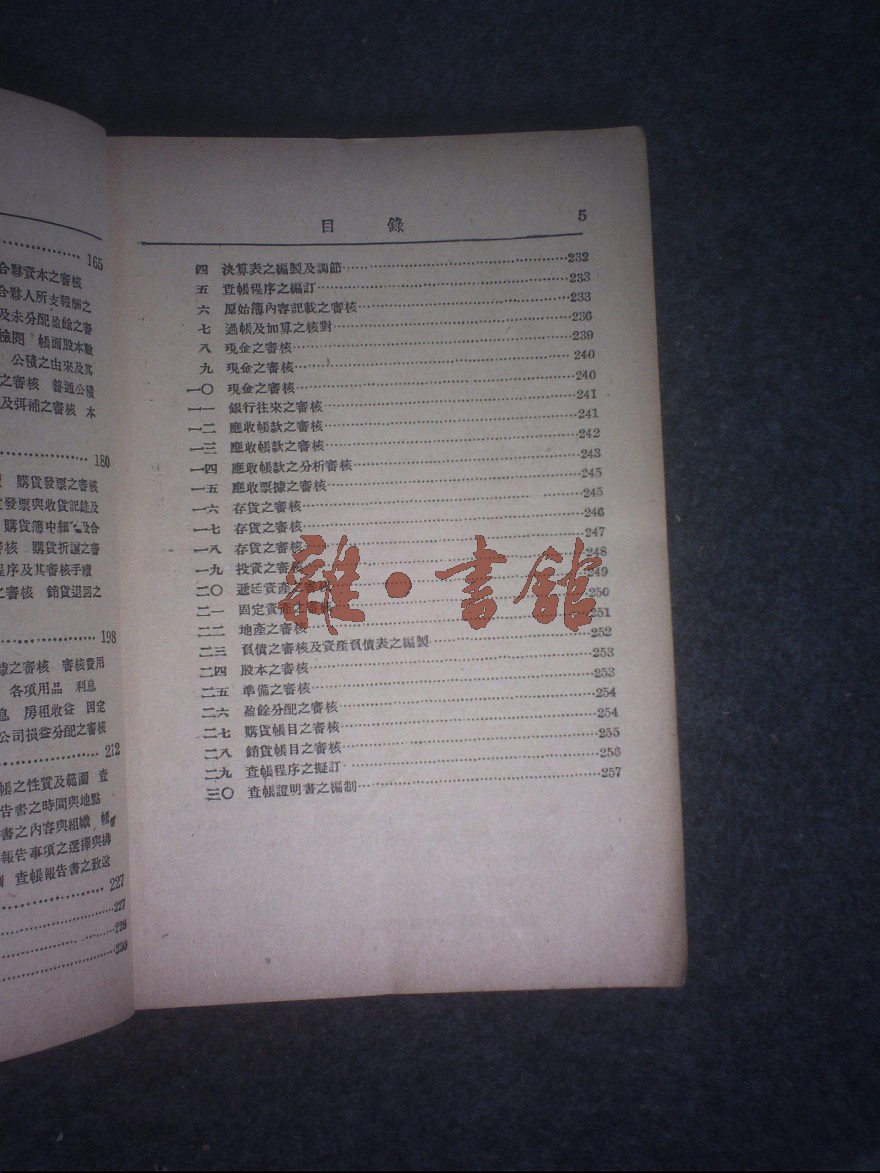 165
合夥資本之審核
合夥人所支報酬之
及未分配盈餘之審
檢閱 帳面股本數
公積之由來及其
之審核 普通公積
及弭補之審核 本
180
購貨發票之審核
發票與收貨記錄及
購貨簿中細 及合
審核 購貨折讓之審
程序及其審核手續
之審核 銷貨退回之
198
據之審核 審核費用
各項用品 利息
息 房租收益 固定
公司損益分配之審核
212
帳之性質及範圍 查
告書之時間與地點
書之內容與組織 帳
報告事項之選擇與排
查帳報告書之致送
227
227
228
230
目 錄 5
四 決算表之編製及調節 232
五 查帳程序之編訂 233
六 原始簿內容記載之審核 233
七 過帳及加算之核對 236
八 現金之審核 239
九 現金之審核 240
一〇 現金之審核 240
一一 銀行往來之審核 241
一二 應收帳款之審核 241
一三 應收帳款之審核 242
一四 應收帳款之分析審核 243
一五 應收票據之審核 245
一六 存貨之審核 245
一七 存貨之審核 246
一八 存貨之審核 247
一九 投資之審核 248
二〇 遞延資產之審核 249
二一 固定資產之審核 250
二二 地產之審核 251
二三 負債之審核及資產負債表之編製 252
二四 股本之審核 253
二五 準備之審核 253
二六 盈餘分配之審核 254
二七 購貨帳目之審核 254
二八 銷貨帳目之審核 255
二九 查帳程序之擬訂 256
三〇 查帳證明書之編制 257
雜·書館